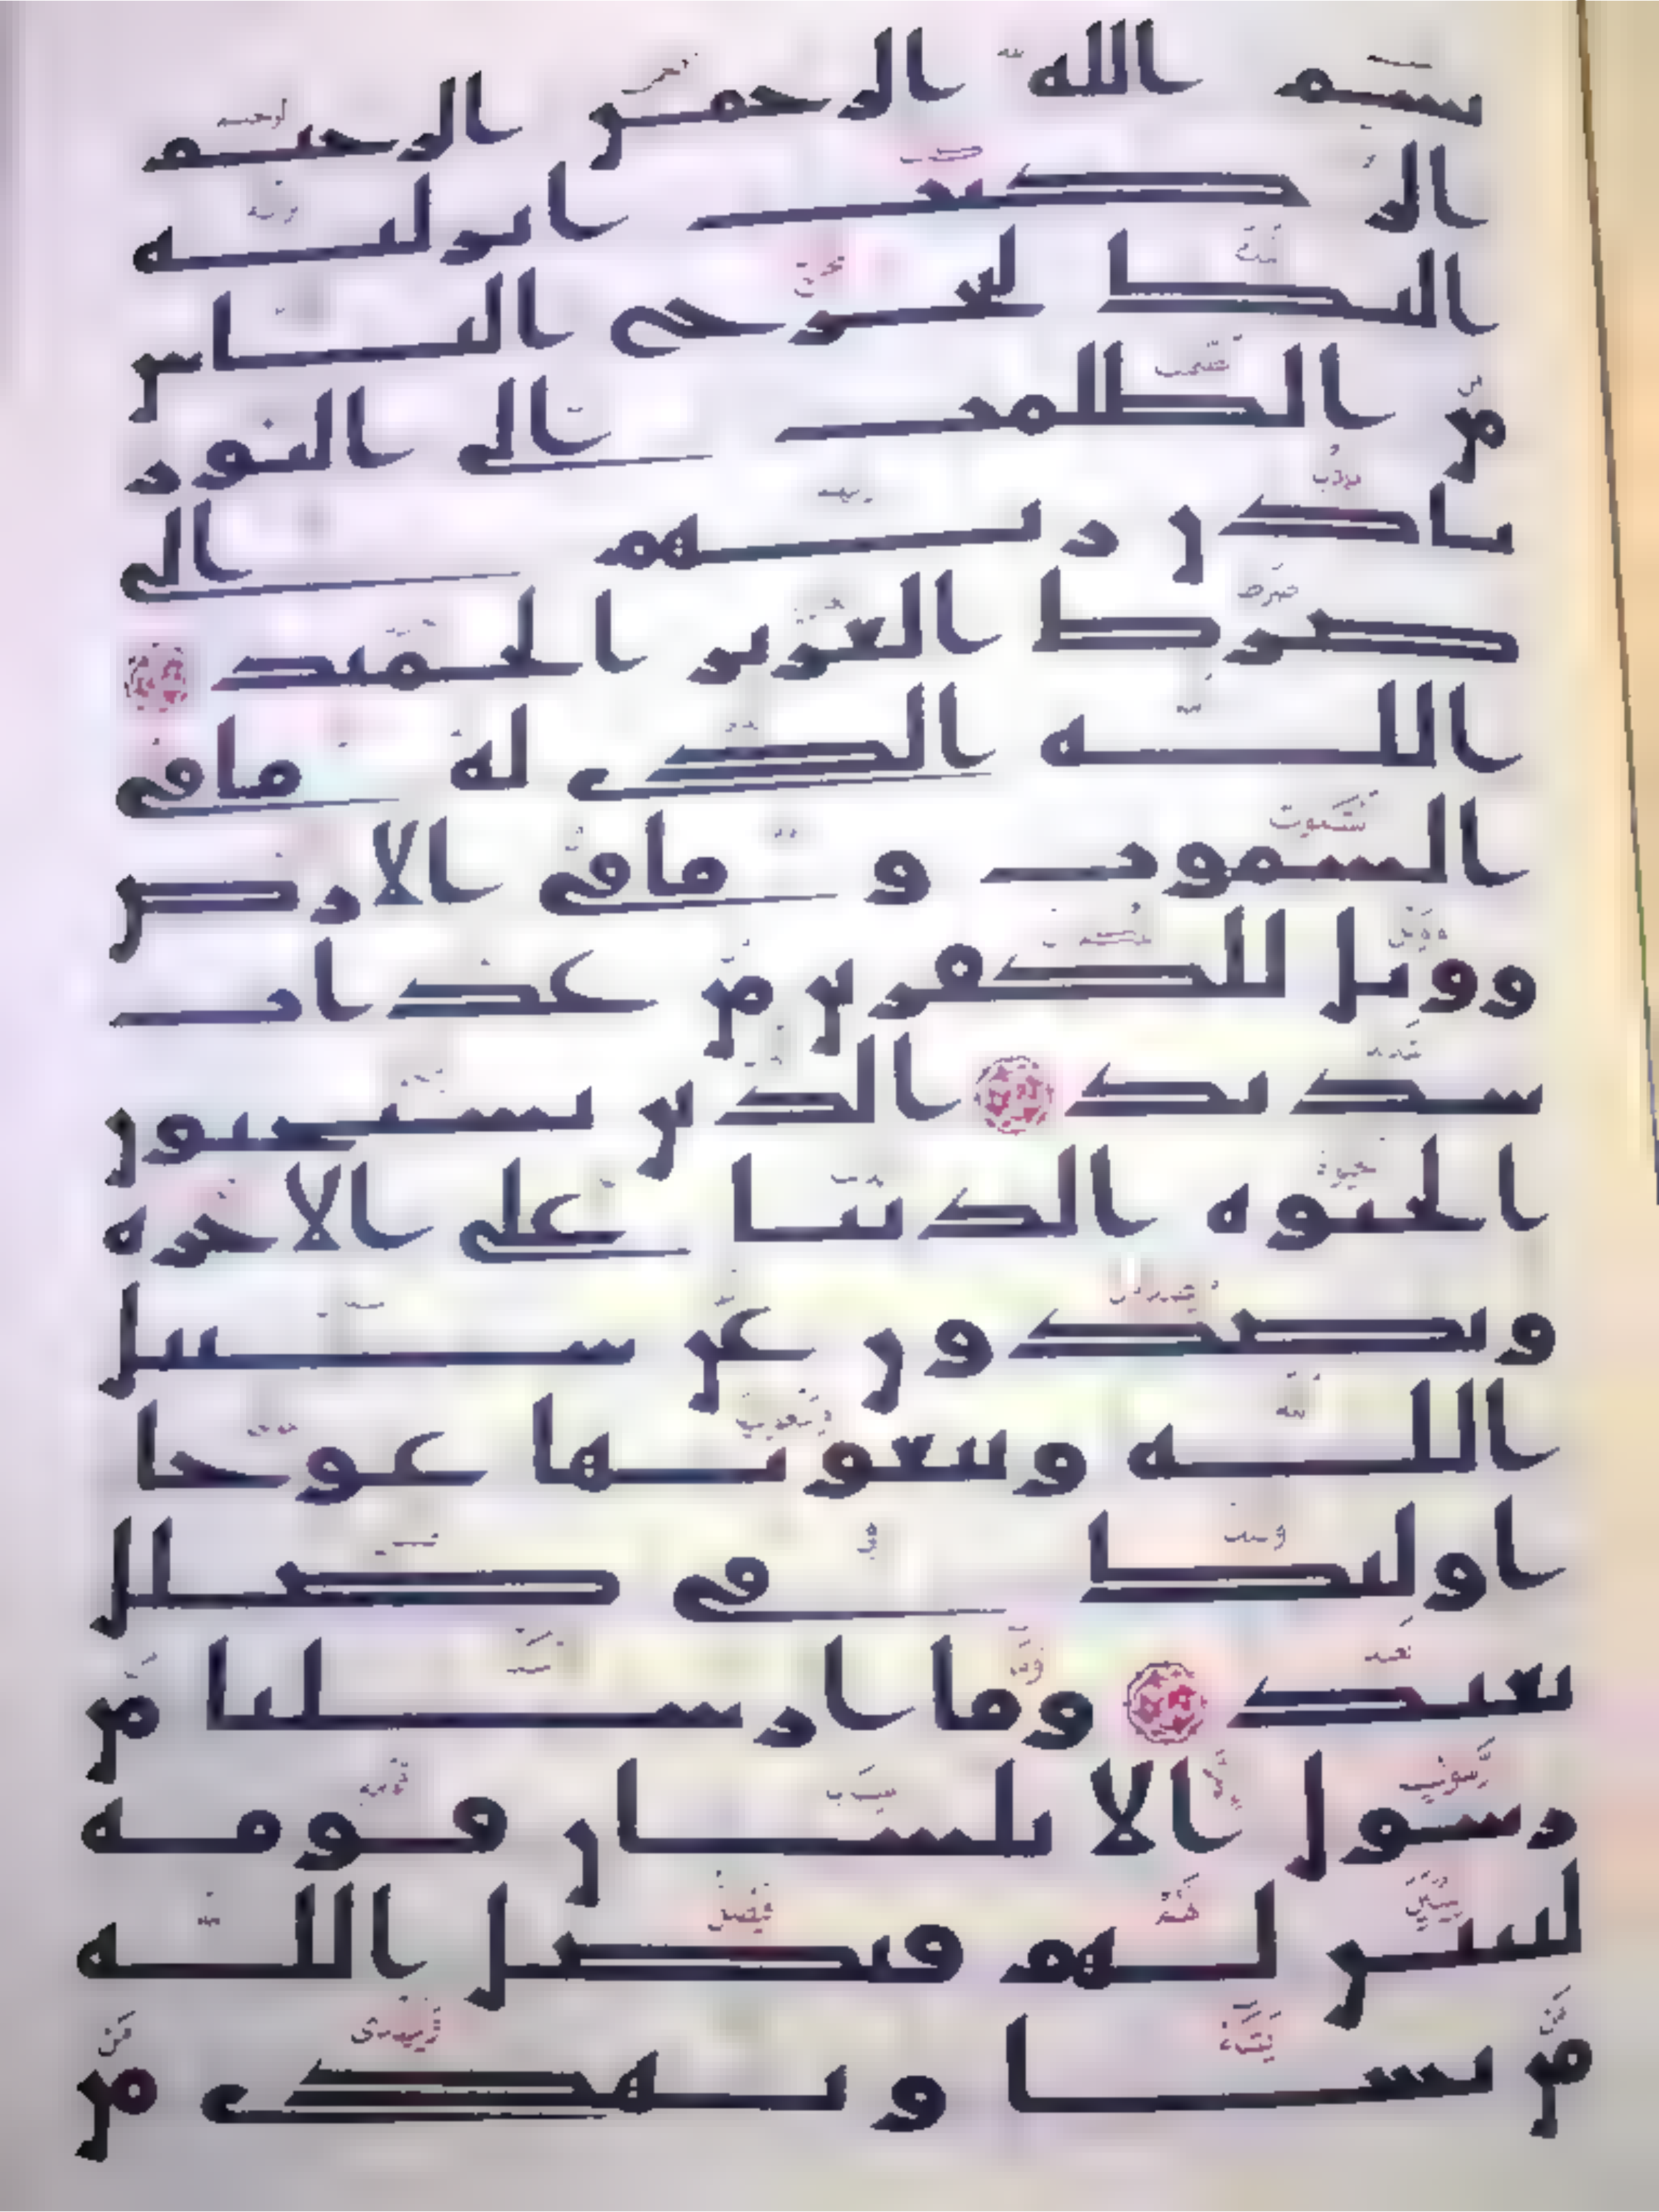 بسم الله الرحمن الرحيم
الر كتب انزلنه
اليك لتخرج الناس
من الظلمت الى النور
باذن ربهم الى
صرط العزيز الحميد
الله الذى له ما فى
السموت و ما فى الارض
وويل للكفرين من عذاب
شديد الذين يستحبون
الحيوة الدنيا على الاخرة
ويصدون عن سبيل
الله ويبغونها عوجا
اولئك فى ضلل
بعيد وما ارسلنا من
رسول الا بلسان قومه
ليبين لهم فيضل الله
من يشا ويهدى من